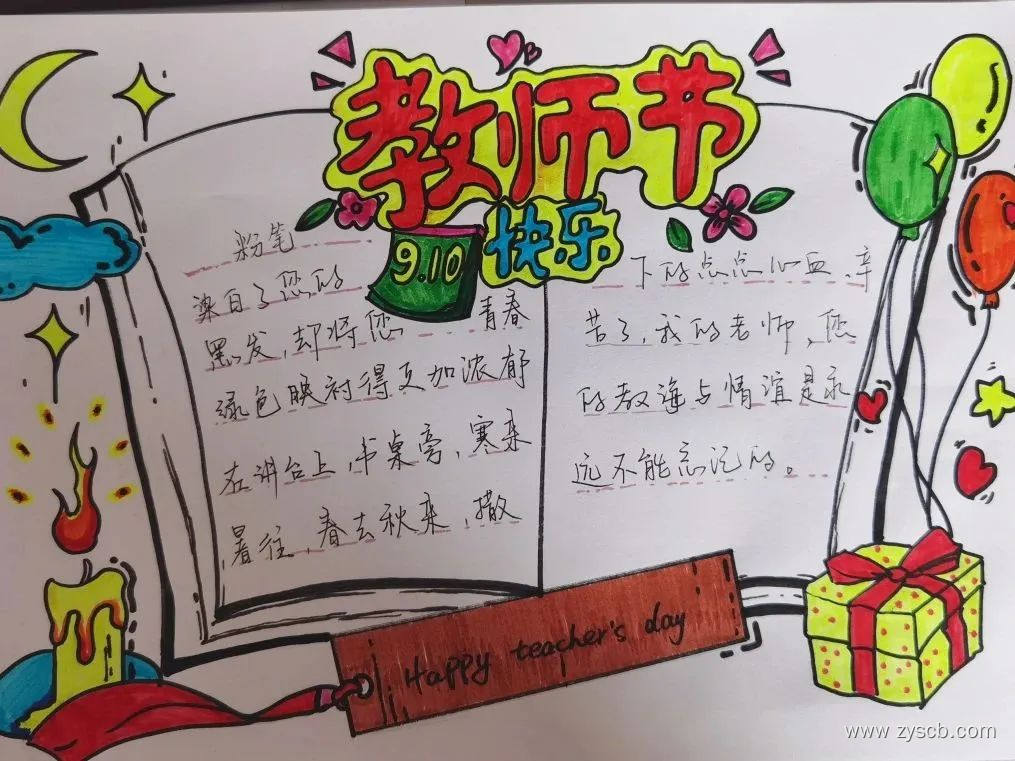 教师节
9.10
快乐
粉笔
染白了您的
黑发，却将您 青春
绿色映衬得更加浓郁
在讲台上，书桌旁，寒来
暑往，春去秋来，撒
下的点点心血，辛
苦了，我的老师，您
的教诲与情谊是永
远不能忘记的。
Happy teacher's day
www.zyscb.com